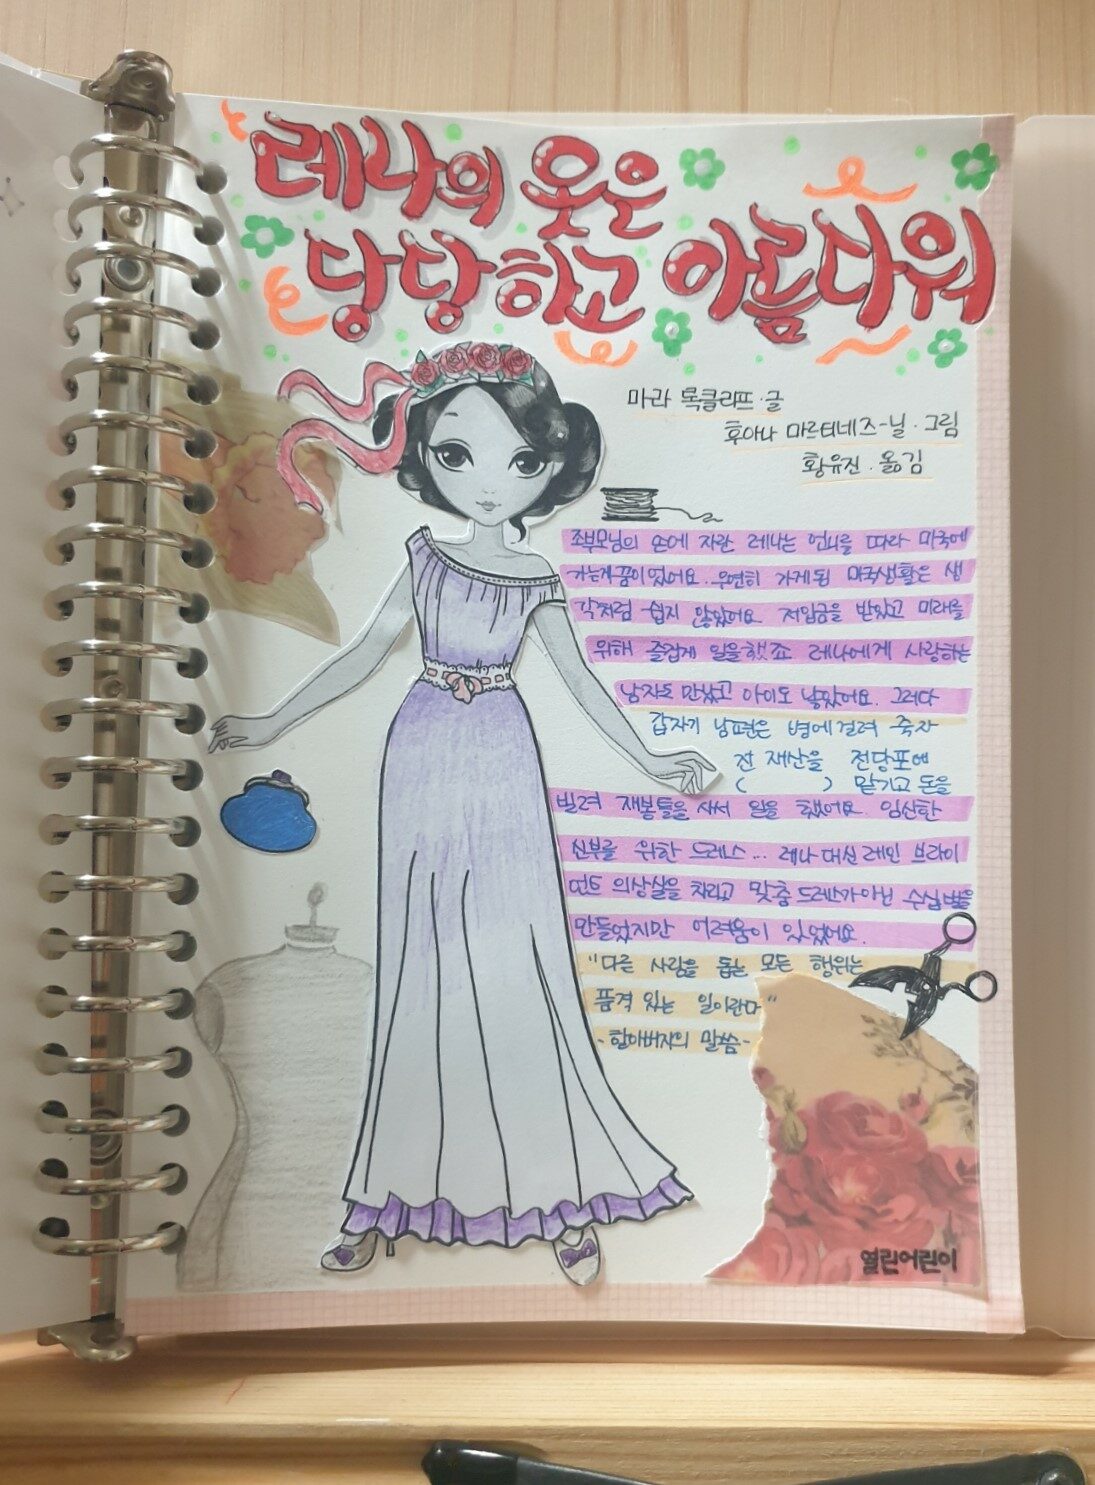 레나의 옷은
당당하고 아름다워
마라 록클리프·글
후아나 마르티네즈-닐·그림
황유진·옮김
조부모님의 손에 자란 레나는 언니를 따라 미국에
가는게 꿈이었어요. 우연히 가게된 미국생활은 생
각처럼 쉽지 않았어요 저임금을 받았고 미래를
위해 즐겁게 일을했죠 레나에게 사랑하는
남자도 만났고 아이도 낳았어요. 그러다
갑자기 남편은 병에걸려 죽자
전 재산을 전당포에
( ) 맡기고 돈을
빌려 재봉틀을 사서 일을 했어요. 임산한
신부를 위한 드레스... 레나 대신 레인 브라이
언트 의상실을 차리고 맞춤드레스가아닌 수십벌을
만들었지만 어려움이 있었어요.
"다른 사람을 돕는 모든 행위는
품격 있는 일이란다"
-할아버지의 말씀-
열린어린이